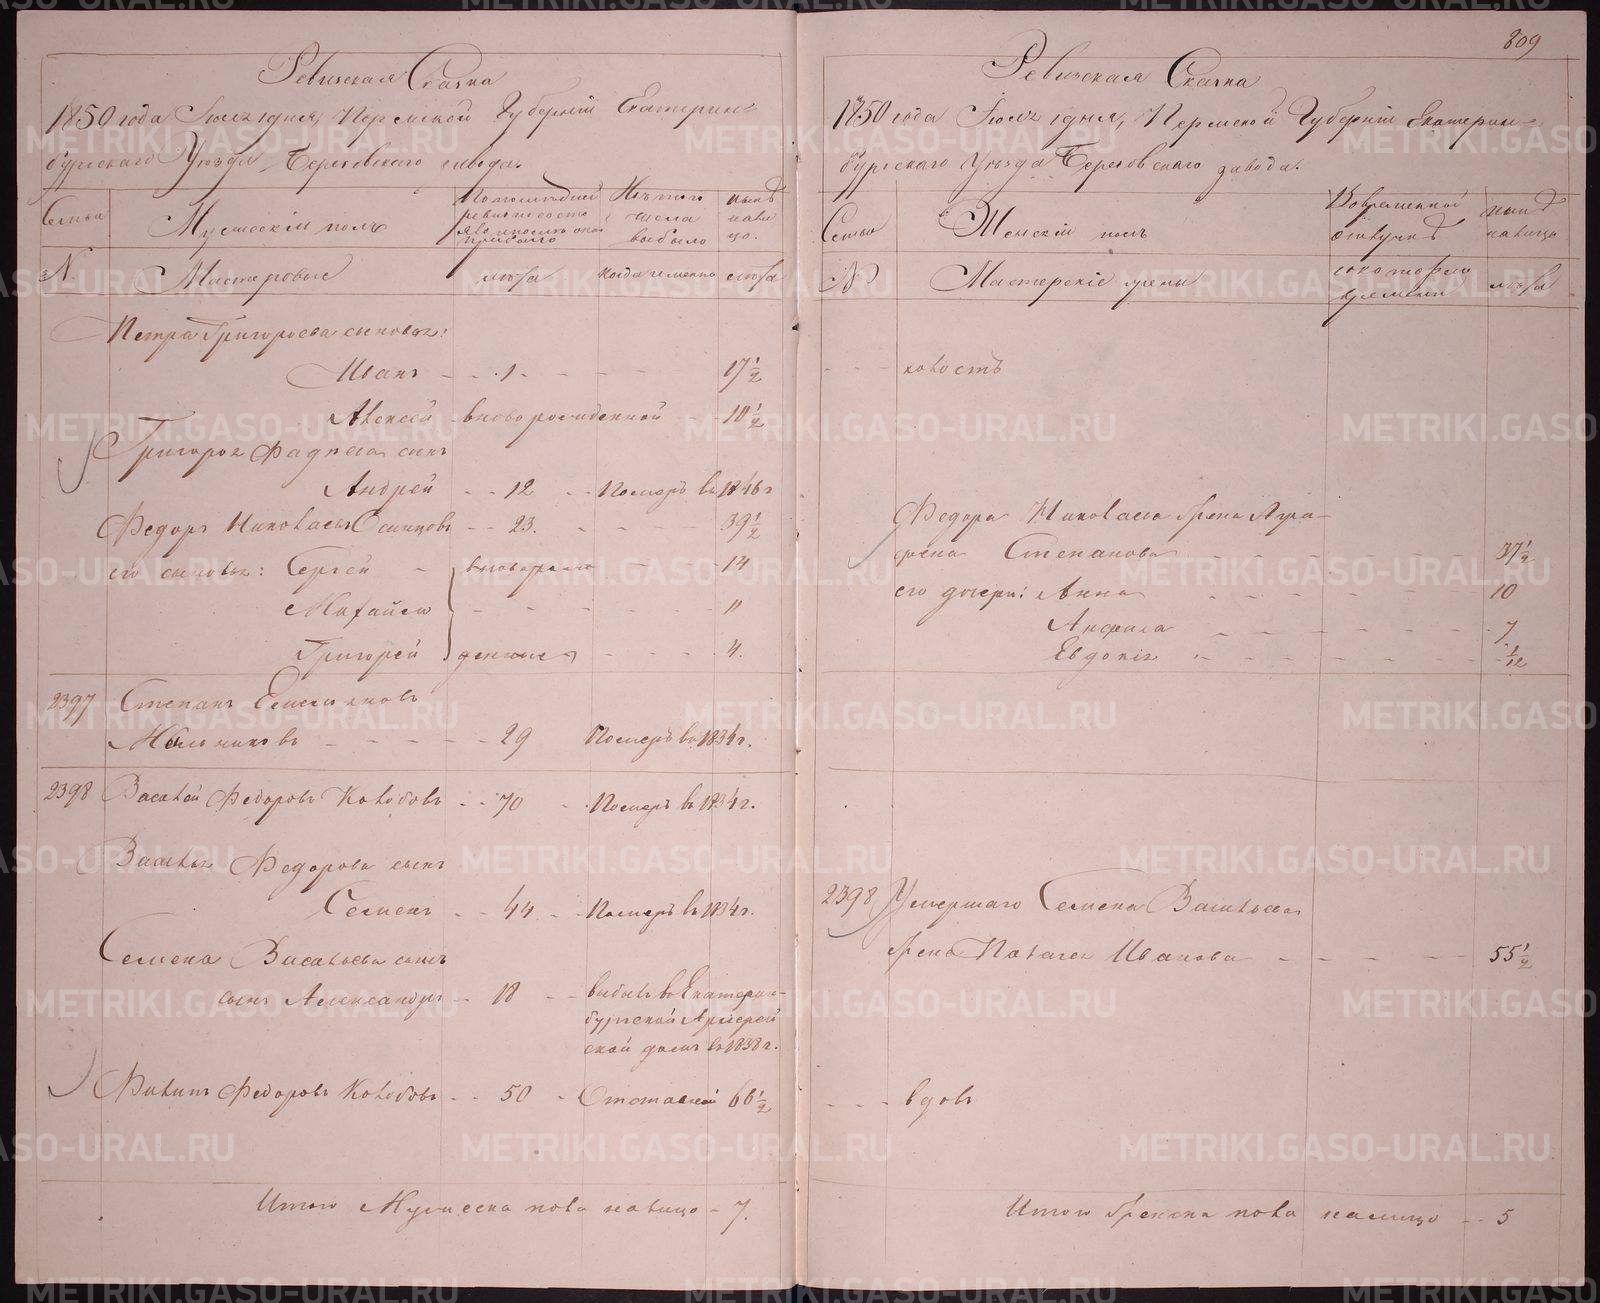 Ревизская Сказка
1850 года Июля 1 дня, Пермской Губернiи Екатерин-
бургскаго Уезда Березовскаго завода.
Семьи
Мужескiй полъ
По последней ревизiи состояло и после оной прибыло
Изъ того числа выбыло
ныне налицо.
№.
Мастеровые
лета
когда именно
лета
Петра Григорьева сыновья:
Иванъ - - 1 - - - 17 1/2
Алексей вновь рожденной - 10 1/2
Григорья Фадеева сынъ
Андрей - - 12 - - Померъ въ 1846 г
Федоръ Николаевъ - - 23. - - 39 1/2
его сыновья: Сергей - вноворож - - 14
Михайло - - - - 11
Григорей денные - - - 4.
2397 Степанъ Емельяновъ
Мыльниковъ - - - - 29 Померъ въ 1834 г.
2398 Василей Федоровъ Колобовъ - - 70 - Померъ въ 1834 г.
Василья Федорова сынъ
Семенъ - - 44 - - Померъ въ 1834 г.
Семена Васильева сынъ
сынъ Александръ - - 18 - - выбылъ въ Екатерин-
бургской Архiерей
ской домъ въ 1838 г.
Филипъ Федоровъ Колобовъ - - 50 - Отставной 66 1/2
Итого Мужеска пола налицо - 7.
809
Ревизская Сказка
1850 года Июля 1 дня, Пермской Губернiи Екатерин-
бургскаго Уезда Березовскаго завода.
Семьи
Женскiй полъ
Во временной отлучке
ныне налицо
№
Мастерскiе жены
съ котораго времени
лета
- - - холостъ
Федора Николаева жена Агра-
фена Степанова - - - - 37 1/2
его дочери: Анна - - - - 10
Анфиса - - - - 7
Евдокiя - - - - 1/12
2398 Умершаго Семена Васильева
жена Палагея Иванова - - - - 55 1/2
- - - вдовъ
Итого Женска пола налицо - - 5
METRIKI.GASO-URAL.RU